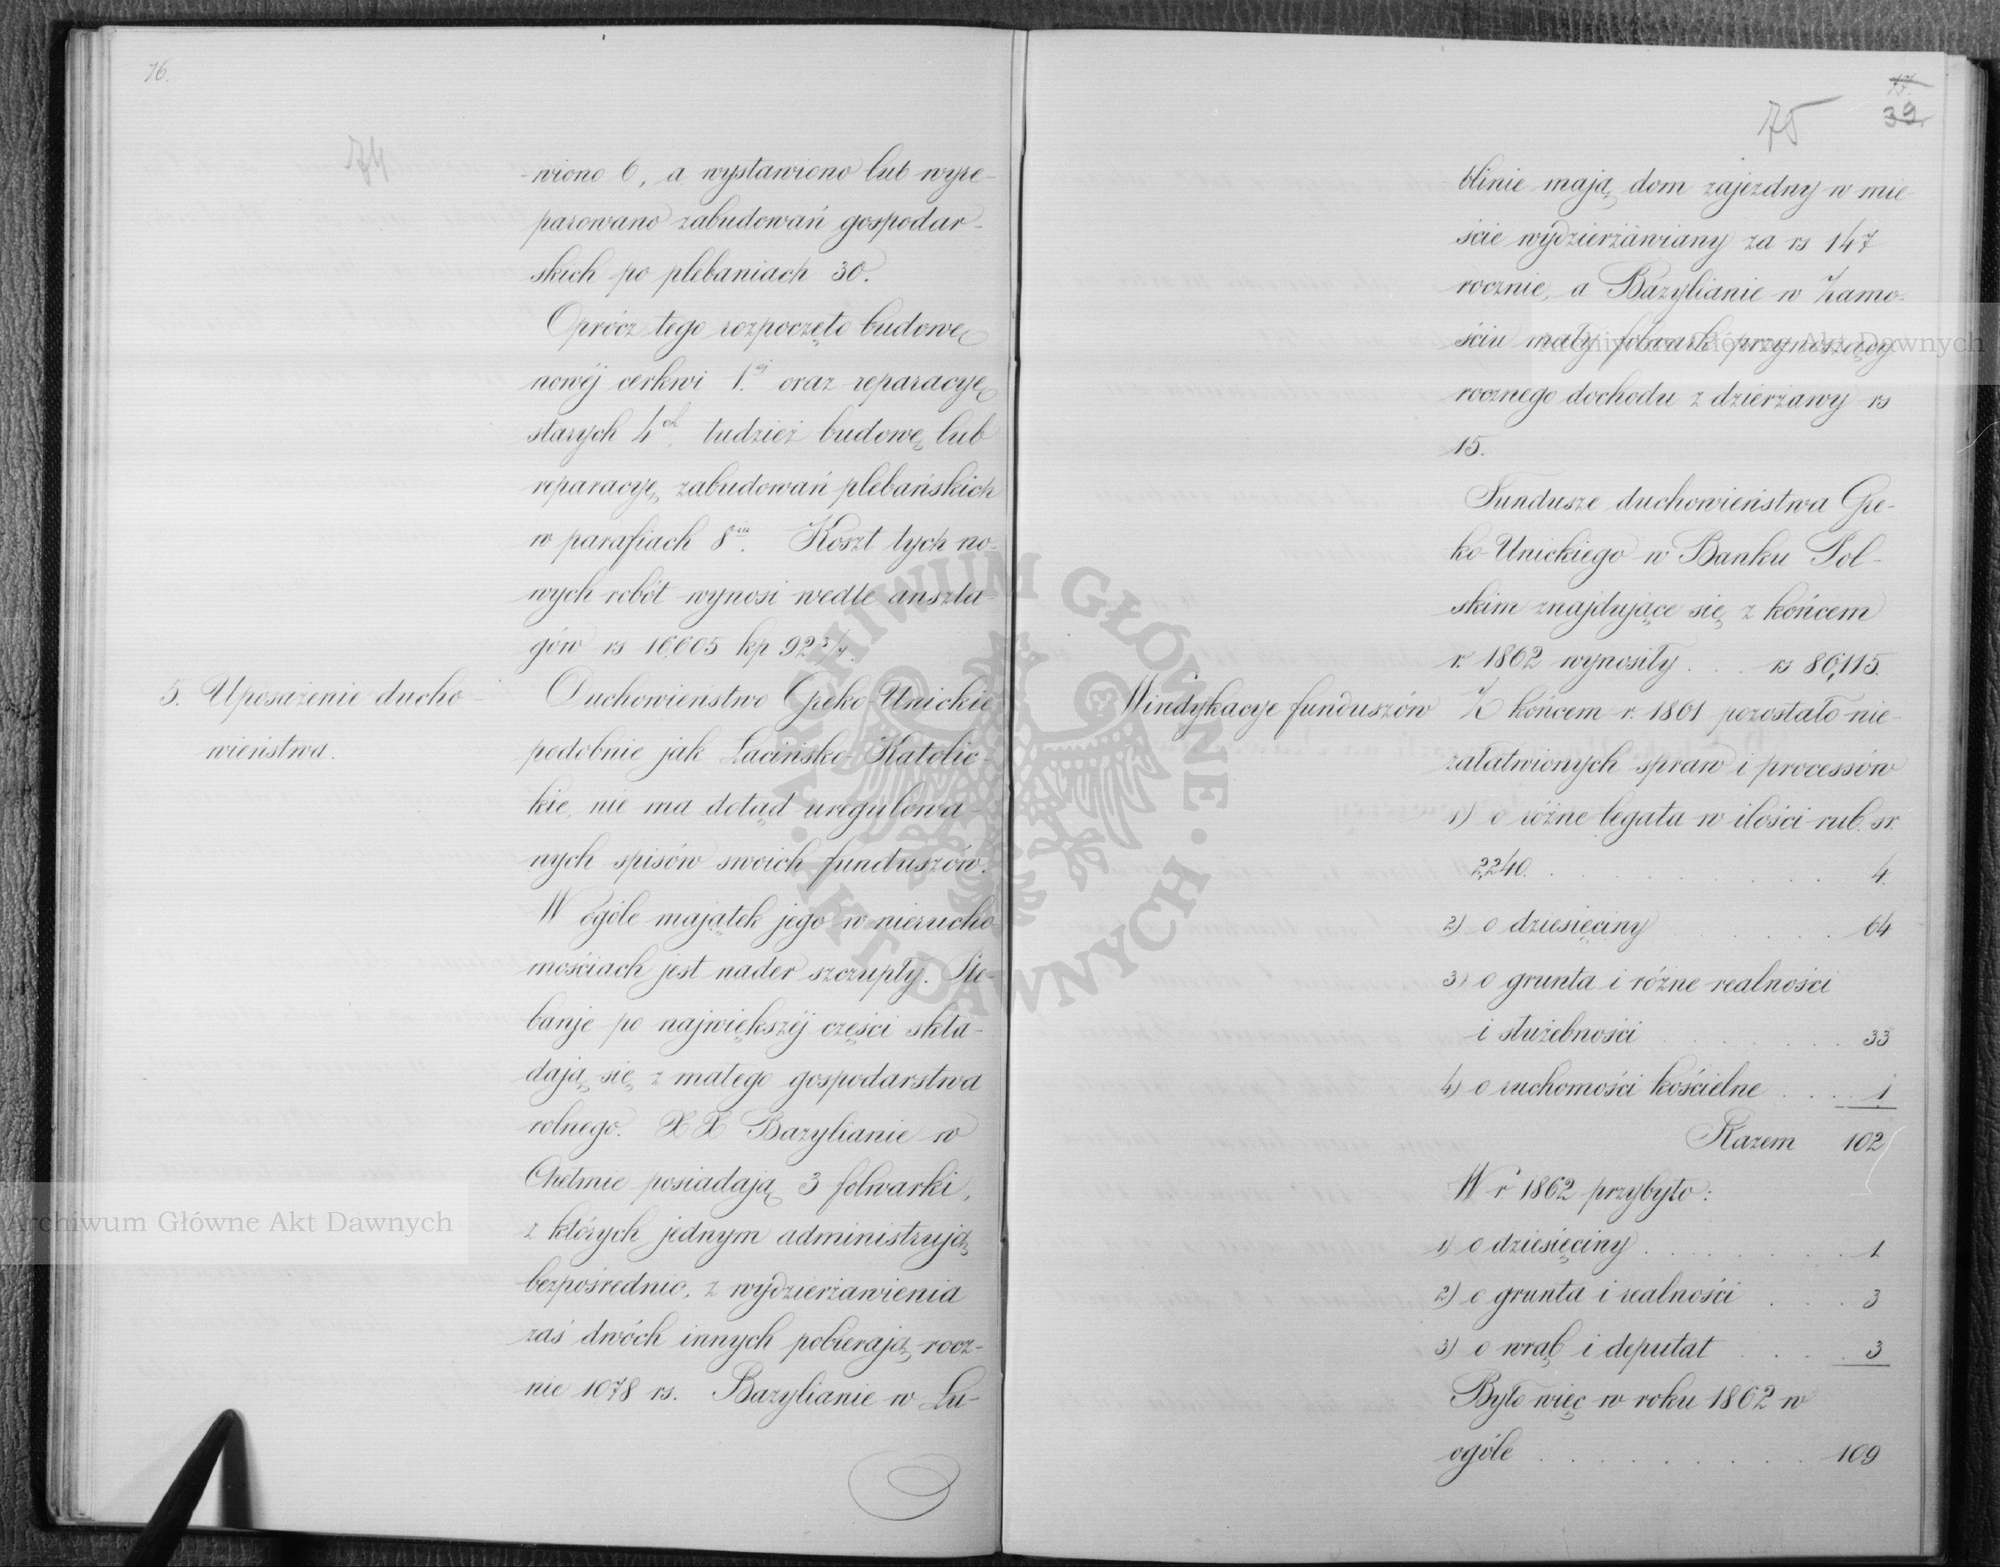 76.
74
-wiono 6, a wystawiono lub wyre-
parowano zabudowań gospodar-
skich po plebaniach 30.
Oprócz tego rozpoczęto budowę
nowéj cerkwi 1.ej oraz reparacyę
starych 4ch, tudzież budowę lub
reparacyę, zabudowań plebańskich
w parafiach 8iu. Koszt tych no-
wych robót wynosi wedle anszla-
gów rs 16,605 kp 92 3/4.
5. Uposażenie ducho-
wieństwa.
Duchowieństwo Greko-Unickie
podobnie jak Łacińsko-Katolic-
kie, nie ma dotąd uregulowa-
nych spisów swoich funduszów.
W ogóle majątek jego w nierucho-
mościach jest nader szczupły. Ple-
banje po największéj części skła-
dają się z małego gospodarstwa
rolnego. XX Bazylianie w
Chełmie posiadają 3 folwarki,
z których jednym administrują
bezpośrednio, z wydzierżawienia
zaś dwóch innych pobierają rocz-
nie 1078 rs. Bazylianie w Lu-
77.
39.
75
blinie mają dom zajezdny w mie-
ście wydzierżawiany za rs 147
rocznie, a Bazylianie w Zamo-
ściu mały folwark przynoszący
rocznego dochodu z dzierżawy rs
15.
Fundusze duchowieństwa Gre-
ko-Unickiego w Banku Pol-
skim znajdujące się z końcem
r. 1862 wynosiły . . . rs 86,115.
Windykacye funduszów
Z końcem r. 1861 pozostało nie-
załatwionych spraw i processów
1) o różne legata w ilości rub. sr.
2,240. . . . . . . . . 4.
2) o dziesięciny . . . . . . 64
3) o grunta i różne realności
i służebności . . . . . . 33
4) o ruchomości kościelne . . . . 1
Razem 102
W r 1862 przybyło:
1) o dziesięciny . . . . . . . 1
2) o grunta i realności . . . 3
3) o wrąb i deputat . . . . 3
Było więc w roku 1862 w
ogóle . . . . . . . . . 109
ARCHIWUM GŁÓWNE • AKT DAWNYCH •
Archiwum Główne Akt Dawnych
Archiwum Główne Akt Dawnych